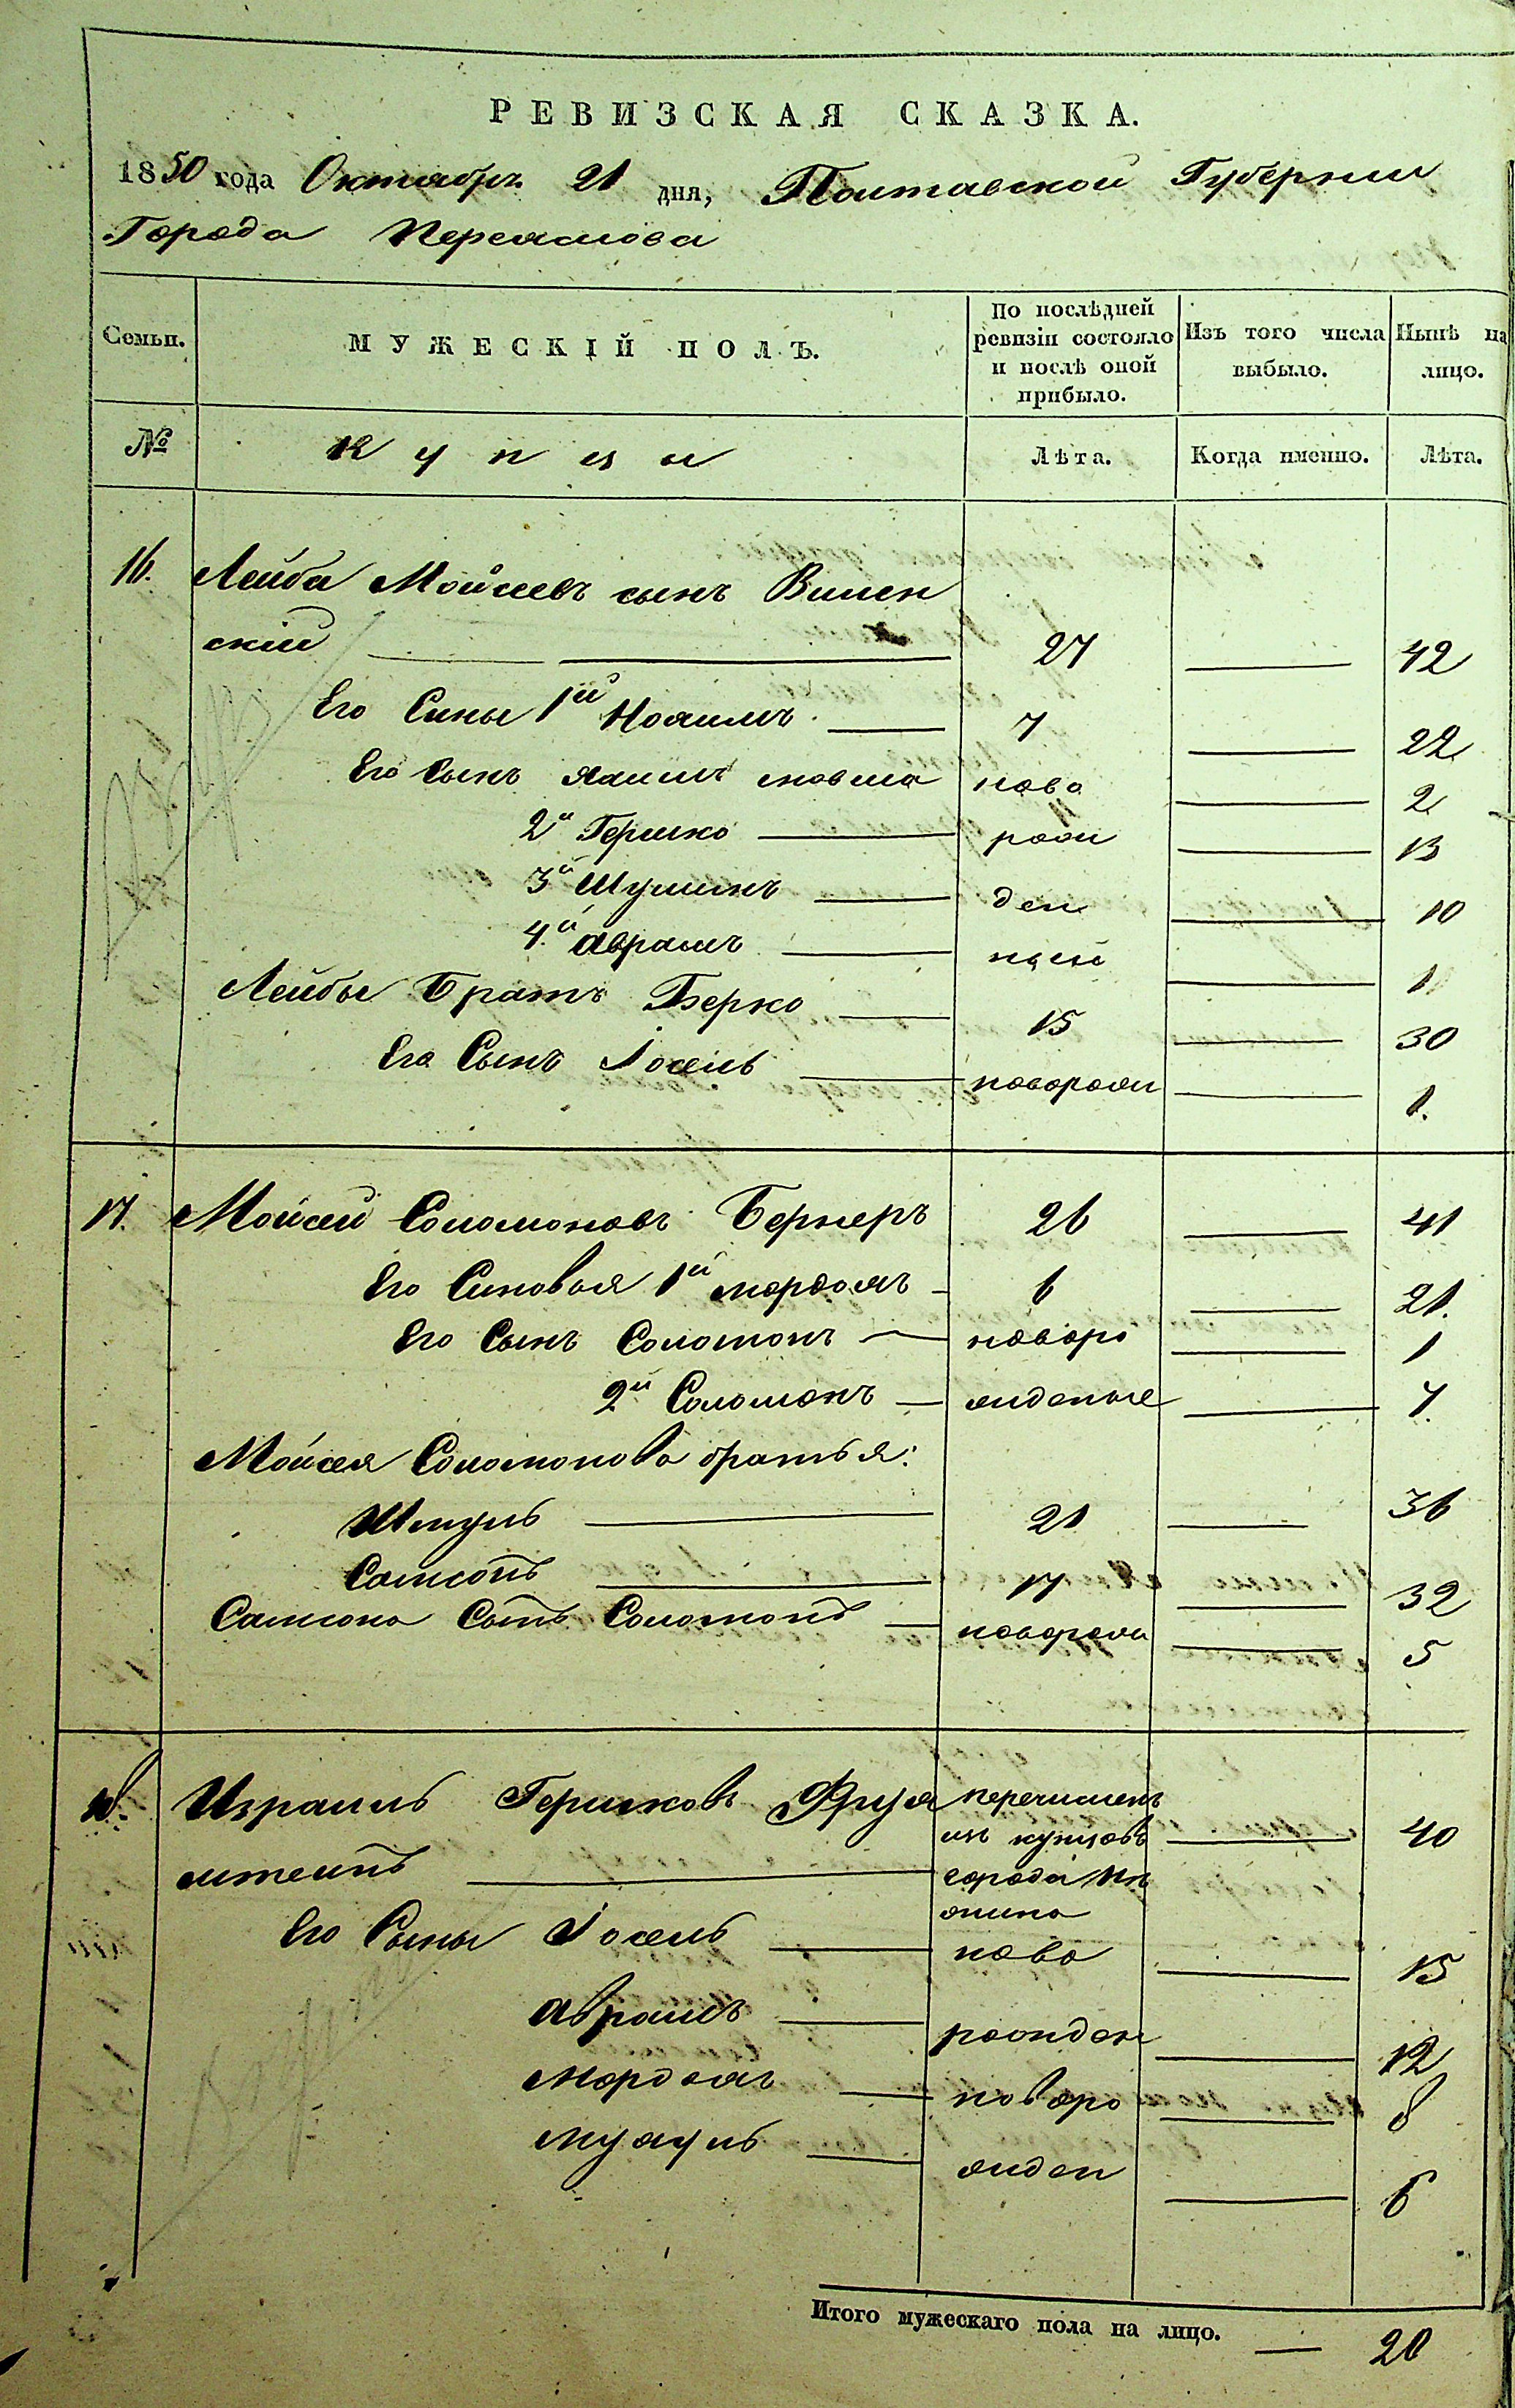 РЕВИЗСКАЯ СКАЗКА.
1850 года Октября 21 дня, Полтавской Губернии
Города Переяслова
Семьи. МУЖЕСКІЙ ПОЛЪ. По послѣдней ревизіи состояло и послѣ оной прибыло. Изъ того числа выбыло. Нынѣ на лицо.
№ Купцы Лѣта. Когда именно. Лѣта.
16. Лейба Мойсеевъ сынъ Вилен
скій 27 42
Его Сины 1й 7 22
Его Сынъ ново 2
2й Гершко рож 13
3й ден 10
4й Аврамъ ный 1
Лейбы Братъ Берко 15 30
Его Сынъ Іосель новорож 1.
17. Мойсей Соломоновъ Бернеръ 26 41
Его Синовья 1й Мордхай 6 21.
Его Сынъ Соломонъ новоро 1
2й Соломонъ жденые 7
Мойсея Соломонова братья:
Шмуль 21 36
Самсонъ 17 32
Самсона Сынъ Соломонъ новорож 5
18. Израиль Гершковъ Фруя перечисленъ
изъ купцовъ 40
мтейнъ города
Его Сыны Іосель ново 15
Аврамъ рожден 12
Мордхай новоро 8
жден 6
Итого мужескаго пола на лицо. 20